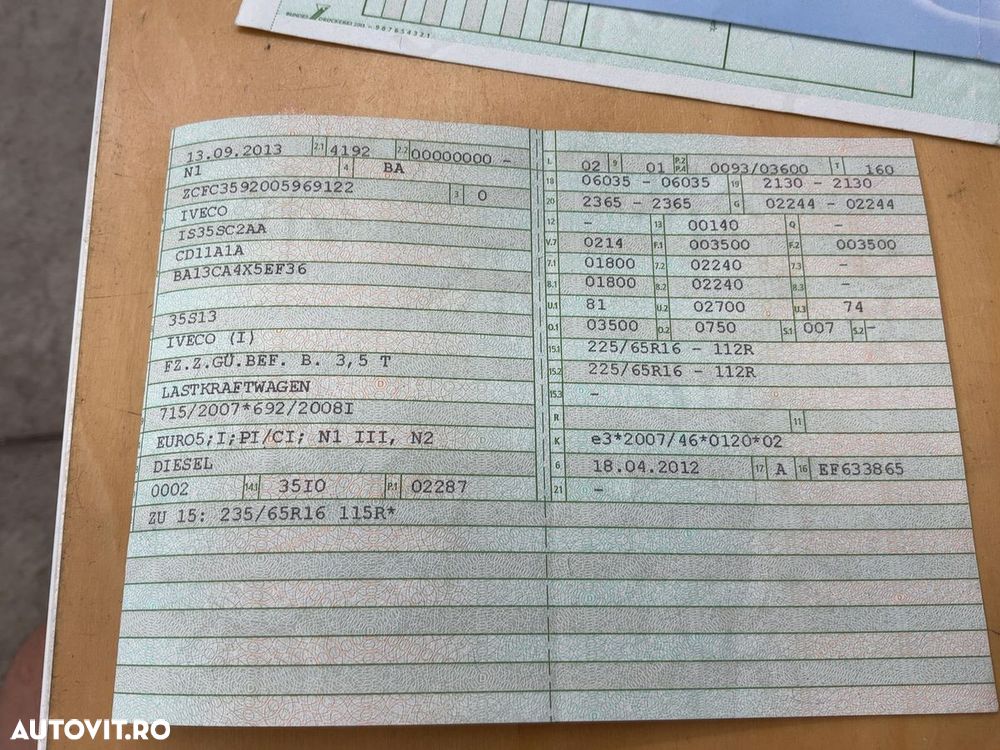 BUNDES DRUCKEREI 2011 - 987654321
13.09.2013 2.1 4192 2.2 00000000 -
N1 4 BA
ZCFC3592005969122 3 0
IVECO
IS35SC2AA
CD11A1A
BA13CA4X5EF36
35S13
IVECO (I)
FZ.Z.GÜ.BEF. B. 3,5 T
LASTKRAFTWAGEN
715/2007*692/2008I
EURO5;I;PI/CI; N1 III, N2
DIESEL
0002 14.1 35I0 P.1 02287
ZU 15: 235/65R16 115R*
L 02 9 01 P.2 P.4 0093/03600 T 160
18 06035 - 06035 19 2130 - 2130
20 2365 - 2365 G 02244 - 02244
12 - 13 00140 Q -
V.7 0214 F.1 003500 F.2 003500
7.1 01800 7.2 02240 7.3 -
8.1 01800 8.2 02240 8.3 -
U.1 81 U.2 02700 U.3 74
O.1 03500 O.2 0750 S.1 007 S.2 -
15.1 225/65R16 - 112R
15.2 225/65R16 - 112R
15.3 -
R 11
K e3*2007/46*0120*02
6 18.04.2012 17 A 16 EF633865
21 -
AUTOVIT.RO